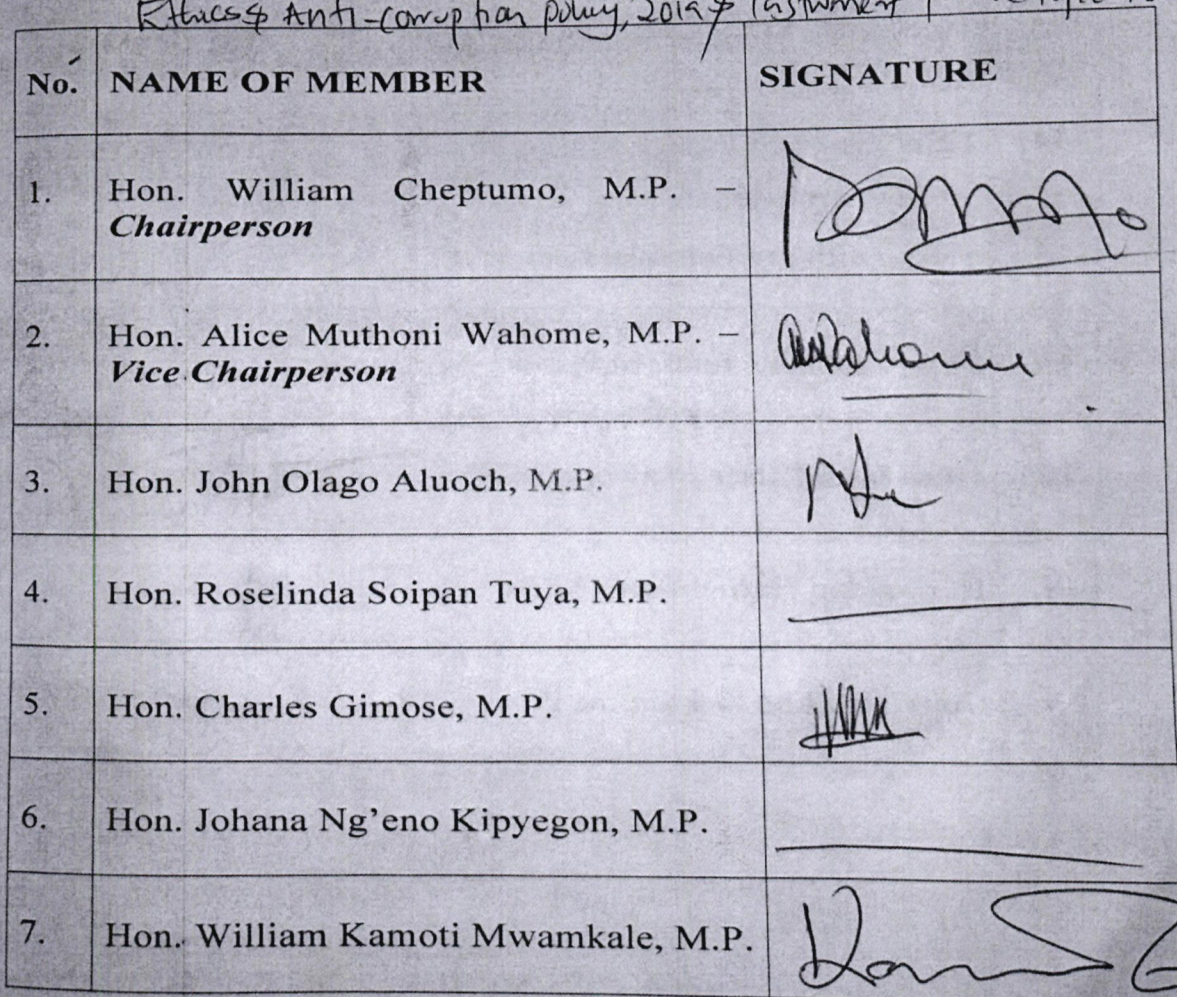 Ethics & Anti-Corruption Policy, 2019 & Instrument
No. NAME OF MEMBER SIGNATURE
1. Hon. William Cheptumo, M.P. –
Chairperson
2. Hon. Alice Muthoni Wahome, M.P. –
Vice Chairperson
3. Hon. John Olago Aluoch, M.P.
4. Hon. Roselinda Soipan Tuya, M.P.
5. Hon. Charles Gimose, M.P.
6. Hon. Johana Ng'eno Kipyegon, M.P.
7. Hon. William Kamoti Mwamkale, M.P.